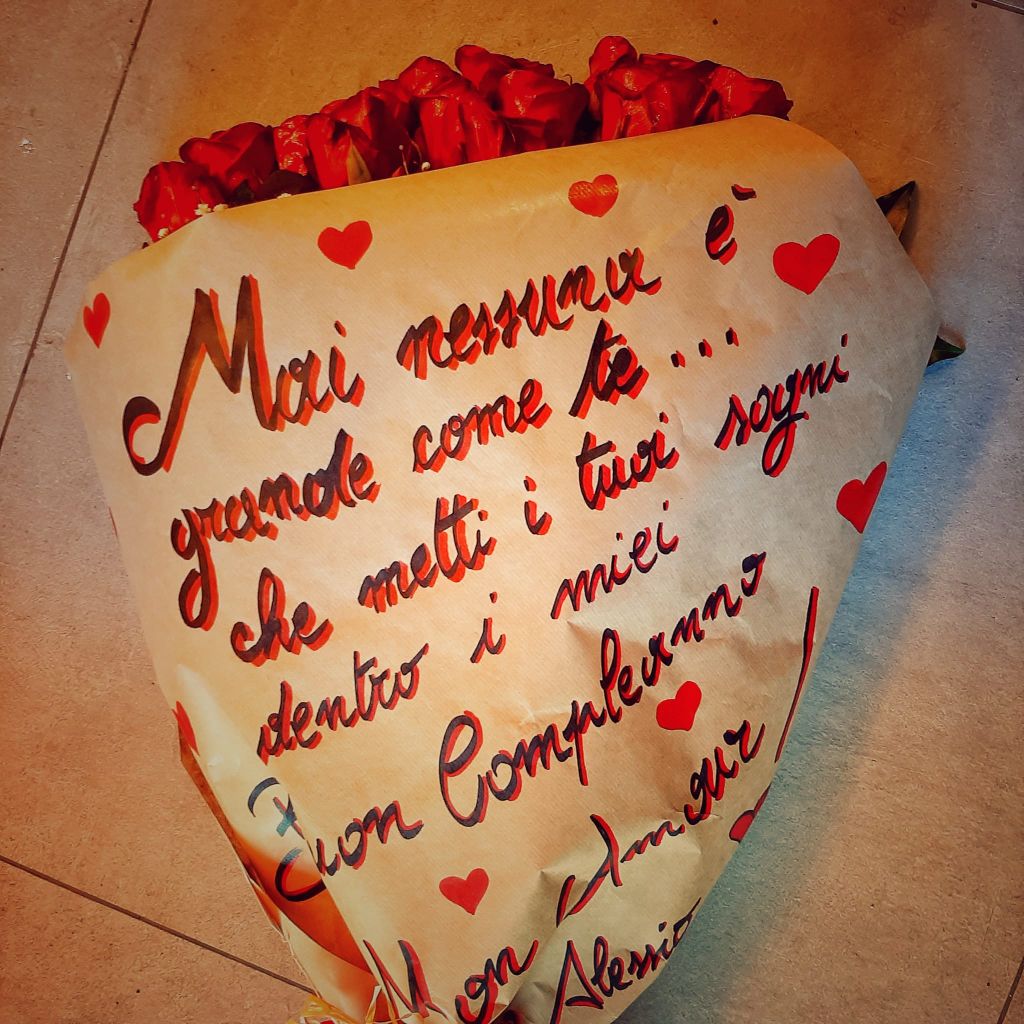 Mai nessuna è
grande come te...
che metti i tuoi sogni
dentro i miei
Buon Compleanno
Mon Amour !
Alessio